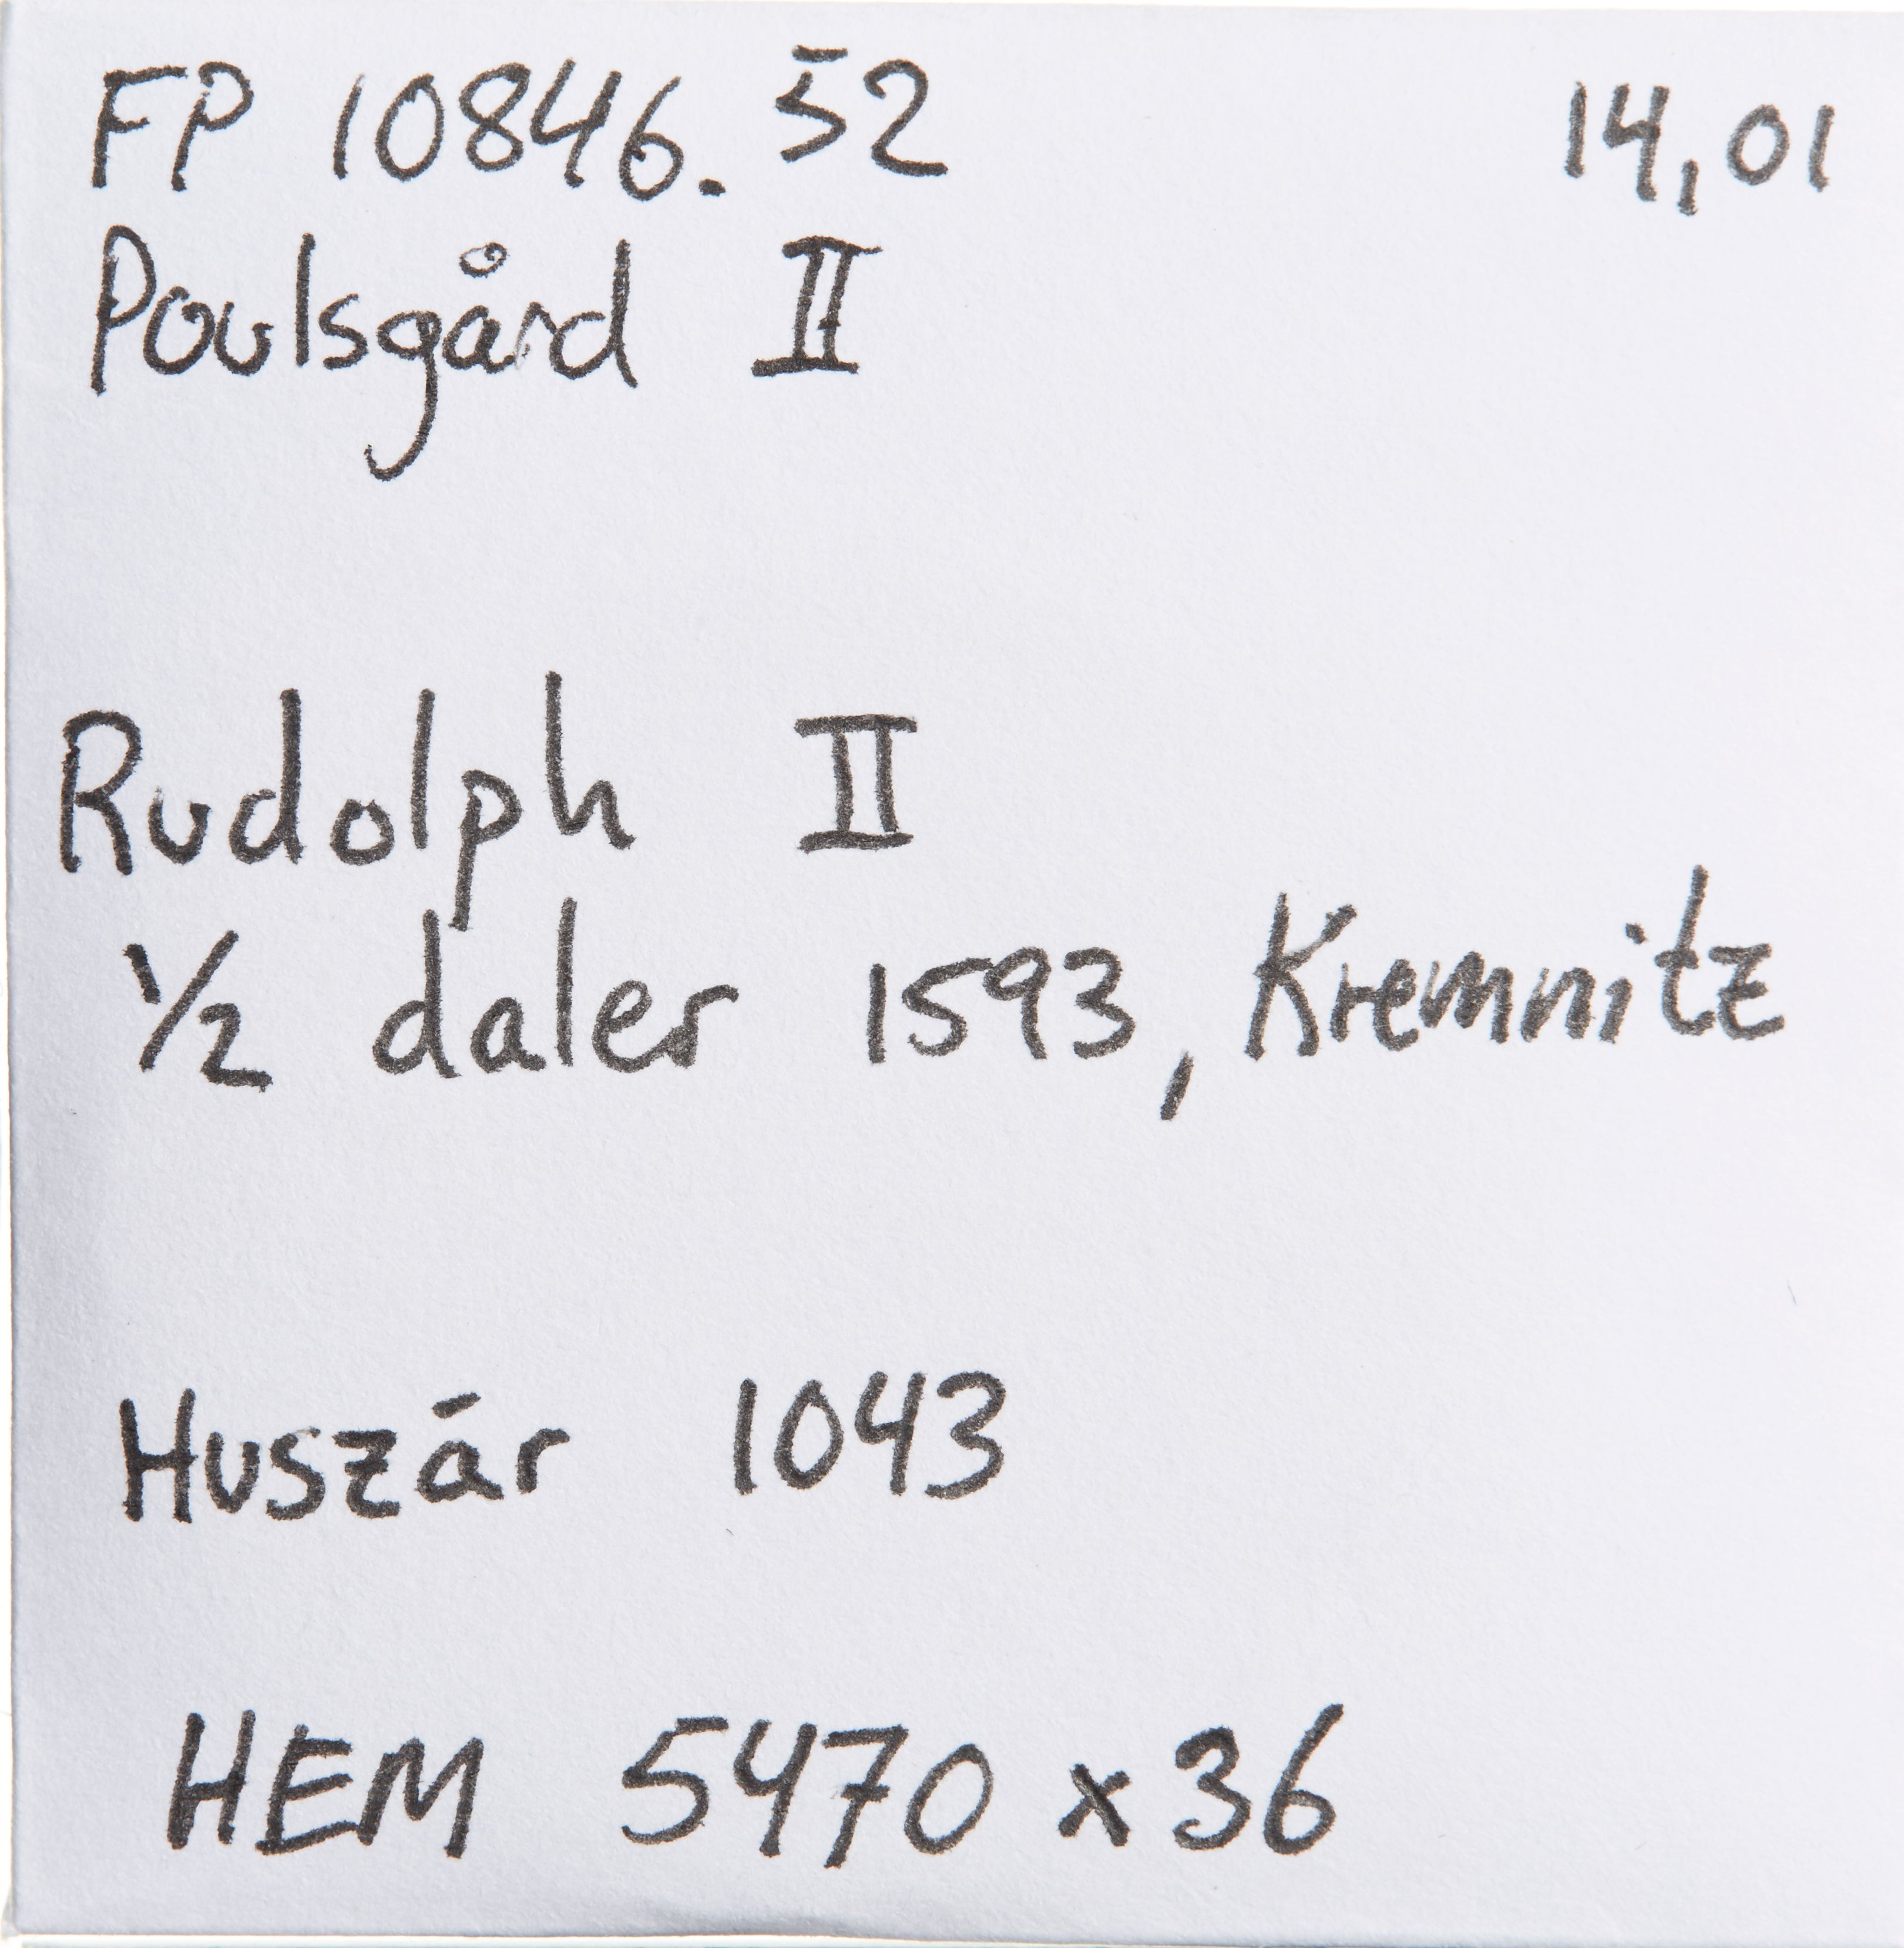 FP 10846.52 14,01
Poulsgård II
Rudolph II
1/2 daler 1593, Kremnitz
Huszár 1043
HEM 5470x36